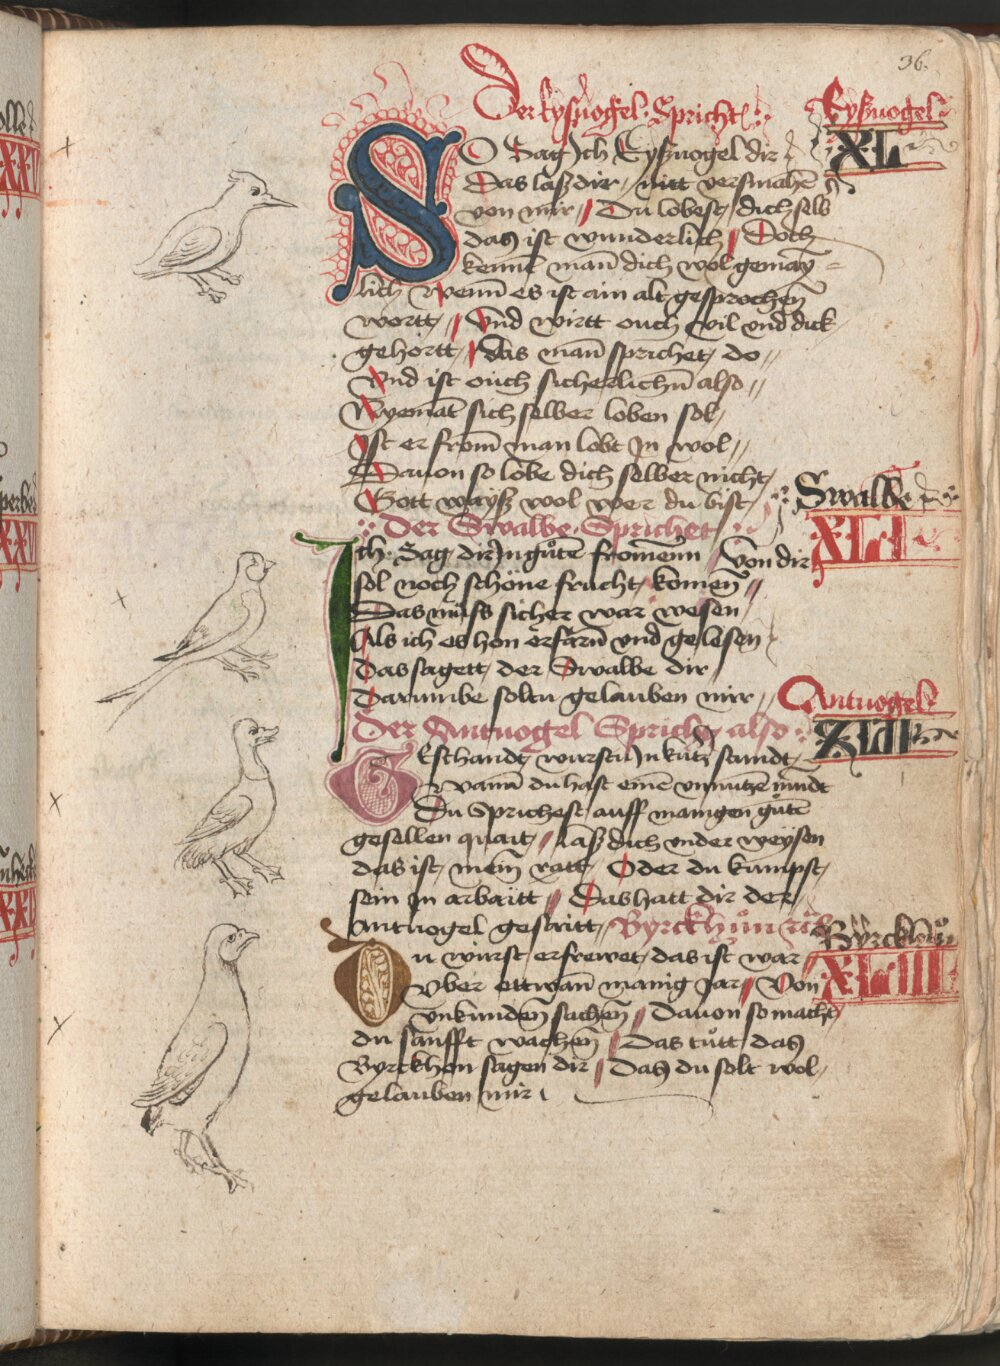 36.
Der Eysuogel. Spricht.
Eysuogel.
XL
SO Sag Jch Eysuogel dir
Das lasz dir, nitt versmahē
von mir / Du lobest, dich selb
das ist wunderlich / Doch
kennt man̄ dich wol gemay=
lich wenn̄ es ist ain alt gesprochen̄
wortt, / Vnd wirtt ouch vil vnd dick
gehörtt, / Das man̄ sprichet, do //
Vnd ist ouch sicherlichn̄ also //
Nyemāt sich selber loben sol,
Jst er from̄ man lobt Jn wol //
Dauon so lobe dich selber nicht,
Gott waysz wol wer du bist,
Swalbe
XLI
Der Swalbe. Sprichet
Jch. Sag dir Jn gůtē fromen̄n von dir
sol noch schöne frucht, komen̄ //
Das můss sicher war wesen
Als ich es hon erfarn̄ vnd gelesen
Das sagett, der Swalbe dir
Darumbe soltu gelauben mir //
Antuogel.
XLII
Der Antuogel Spricht, also
Gschandt, wurstu Jn kurtz stundt,
wann̄ du hast einē vnnutzē mundt
Du Sprichest, auff manigen gůtē
gesellen quait, / Lasz dich vnder weysen
das ist, mein̄ ratt, Oder du kumpst,
sein jn arbaitt // Das hatt dir der
Antuogel gesaitt, Byrckhůn
Byrckhůn
XLIII
Du wirst, erfrewet, das ist war
Vber ettwan̄ manig Jar / Von
vnkunden̄ sachen̄ / Dauon so macht
du sanfft wachen̄ / Das tůtt das
Byrckhon sagen dir / Das du solt wol,
gelauben mir